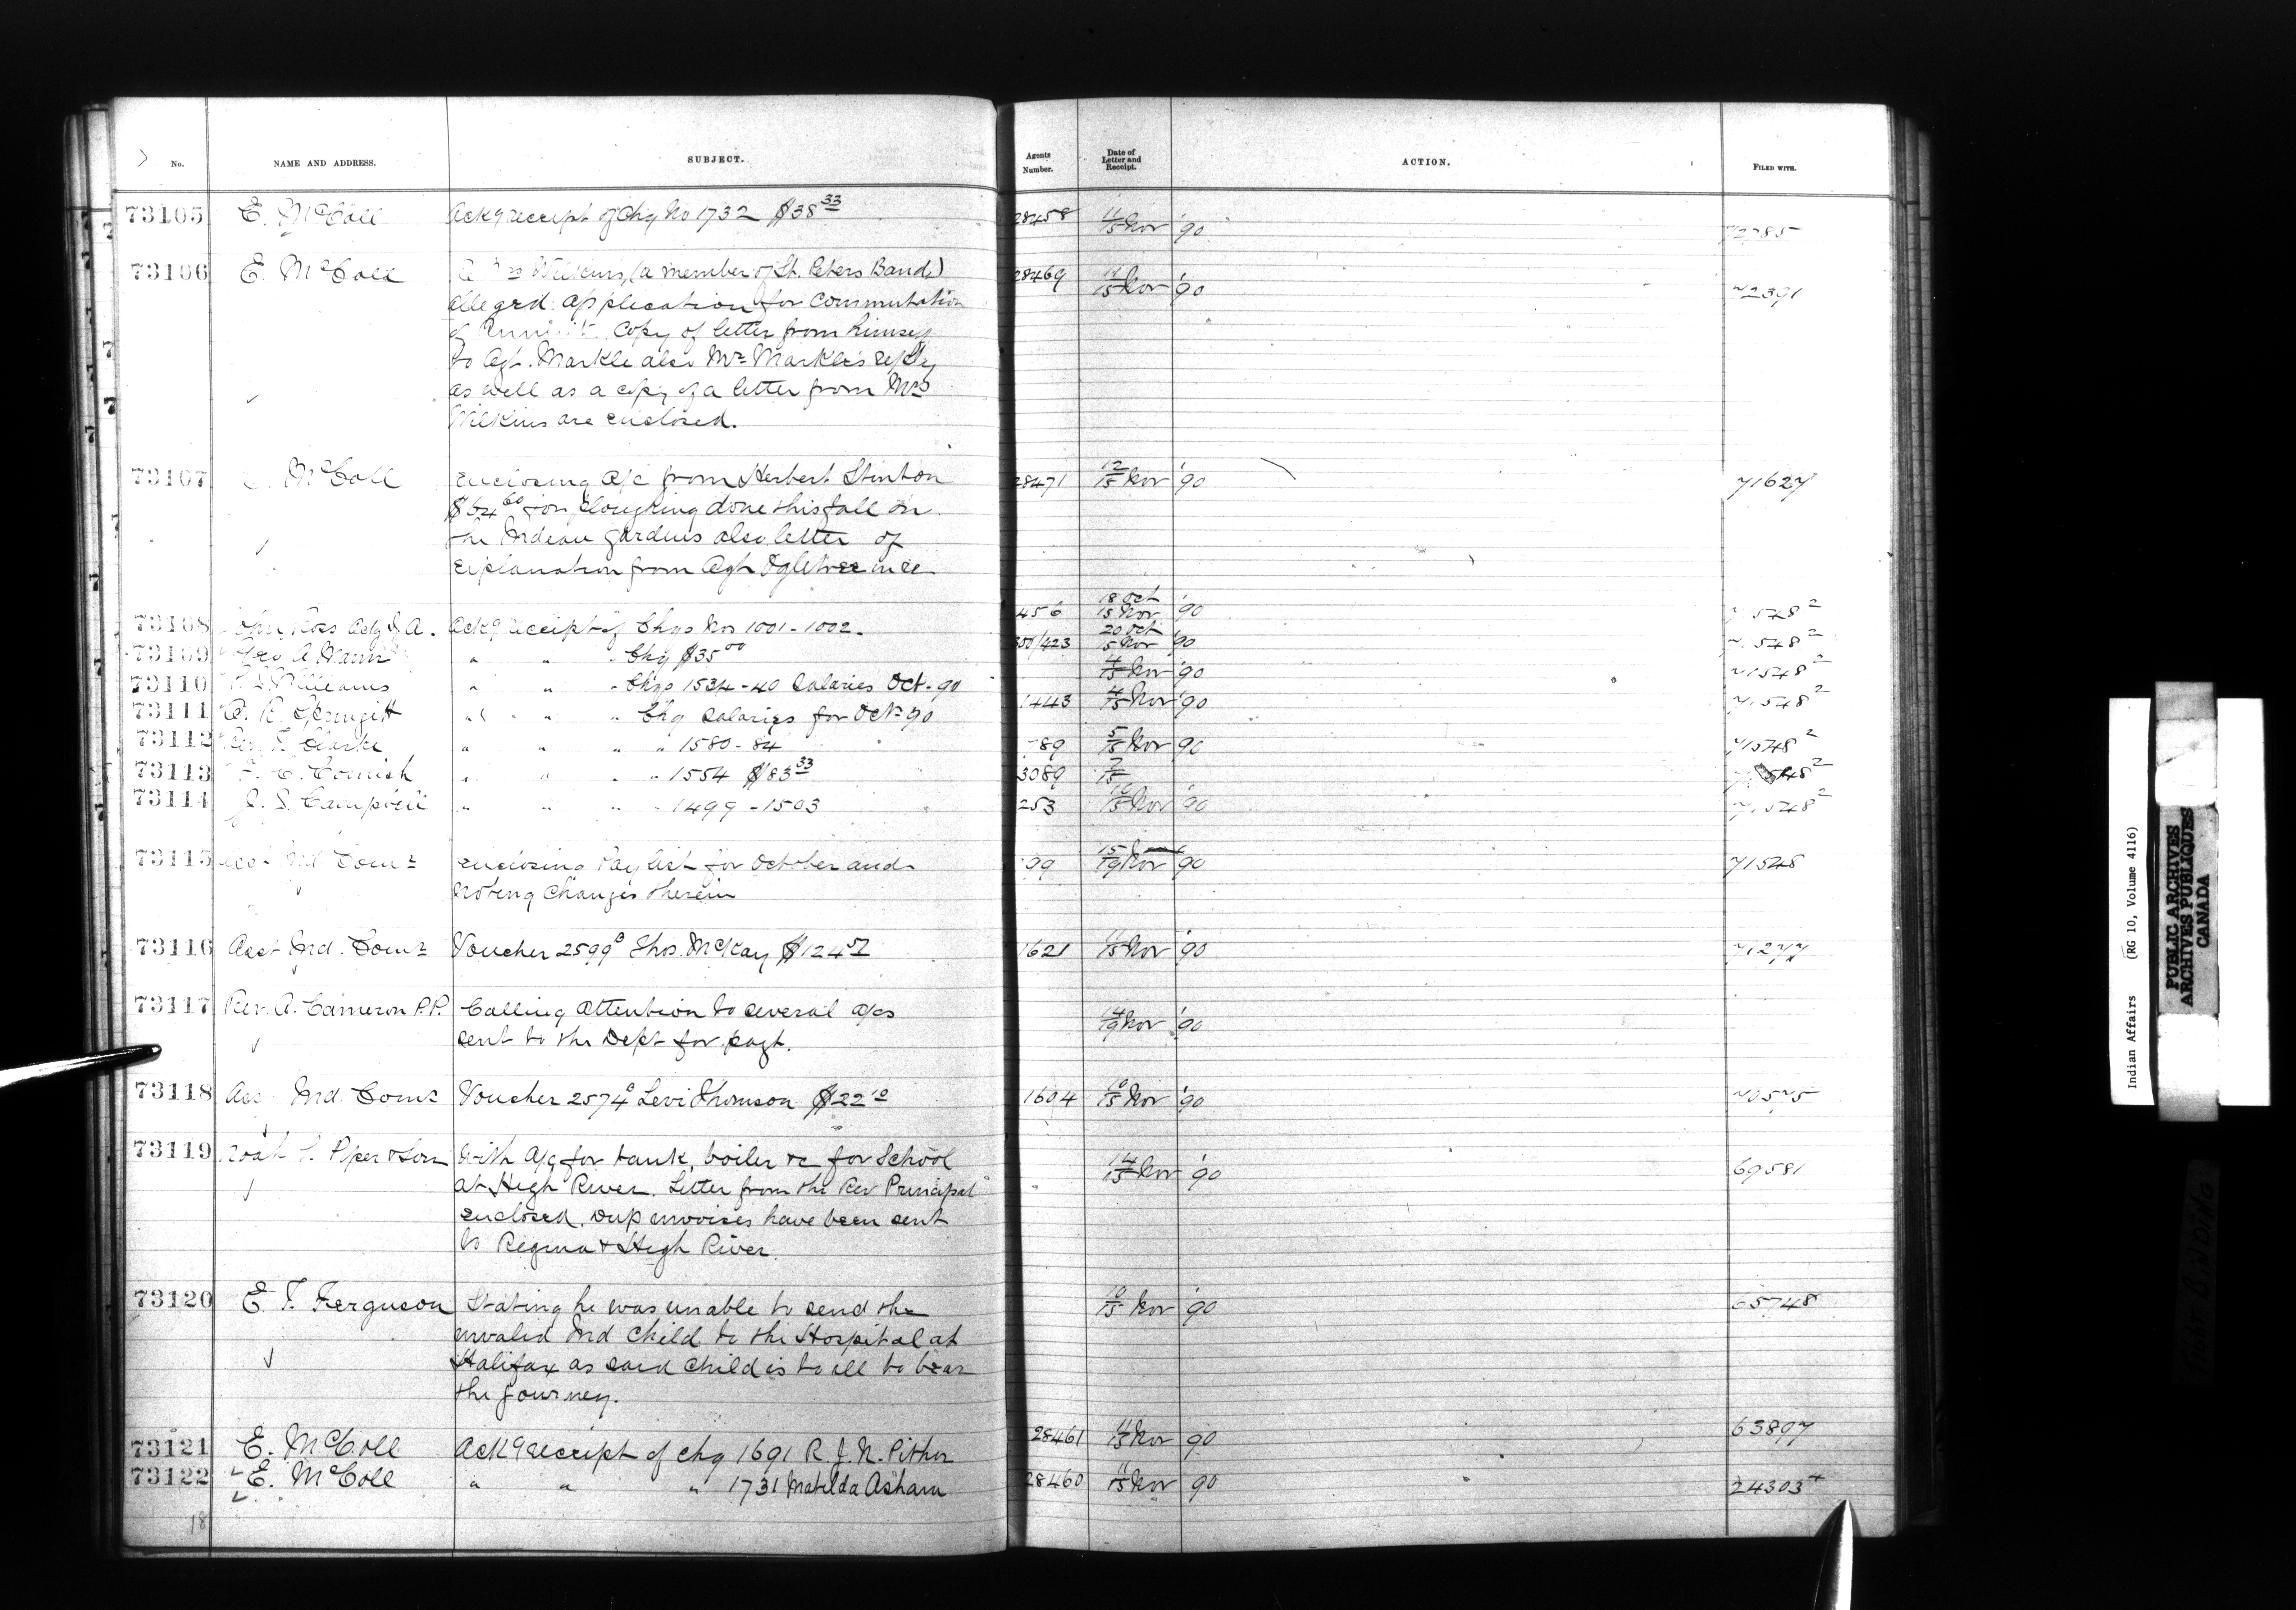 No. NAME AND ADDRESS. SUBJECT. Agents Number. Date of Letter and Receipt. ACTION. FILED WITH.
73105 E. McColl Ackg receipt of Chq No 1732 $38 33 28458 11/15 Nov '90
73106 E. McColl Wilkins, (a member of St. Peters Band) 28469 15 Nov '90 72391
alleged application for commutation
of copy of letter from himself
to Agt. Markle also Mr Markle's reply
as well as a copy of a letter from Mrs
Wilkins are enclosed.
73107 E. McColl Enclosing a/c from Herbert Stinton 28471 12/15 Nov '90 71627
$64 60 for ploughing done this fall on
the Indian gardens also letter of
explanation from Agt Ogletree in re
73108 John Ross Actg I. A. Ackg receipt of Chqs Nos 1001-1002. 456 18 Oct 15 Nov '90 71548 2
73109 Geo A. Mann " " " Chq $35 00 20 Oct 15 Nov '90 71548 2
73110 Williams " " " Chqs 1534-40 Salaries Oct. 90 4/15 Nov '90 71548 2
73111 " " " Chq Salaries for Oct 90 1443 4/15 Nov '90 71548 2
73112 Rev. Clarke " " " " 1580-84 89 5/15 Nov 90 71548 2
73113 F. C. Cornish " " " " 1554 $83 33 3089 7/15
73114 J. S. Campbell " " " " 1499-1503 253 10/15 Nov '90 71548 2
73115 Ind Comr Enclosing Paylist for October and 99 15/19 Nov 90 71548
noting changes therein
73116 Asst Ind. Comr Voucher 2599 Thos. McKay 1621 15 Nov '90 71277
73117 Rev. A. Cameron P.P. Calling attention to several a/cs 14/19 Nov '90
sent to the Dept for payt.
73118 Ind. Comr Voucher 2574 Levi Thomson $22 10 1604 10/15 Nov '90 70575
73119 Noah L. Piper & Son With a/c for tank, boiler &c for School 14/15 Nov '90 69581
at High River. Letter from the Rev Principal
enclosed. Dup invoices have been sent
to Regina & High River.
73120 E. F. Ferguson Stating he was unable to send the 10/15 Nov '90 65748
invalid Ind child to the Hospital at
Halifax as said child is to ill to bear
the journey.
73121 E. McColl Ackg receipt of chq 1691 R. J. N. Pither 28461 11/15 Nov 90 63897
73122 E. McColl " " " 1731 Matilda Asham 28460 11/15 Nov 90 24303 4
18
Indian Affairs (RG 10, Volume 4116)
PUBLIC ARCHIVES
ARCHIVES PUBLIQUES
CANADA